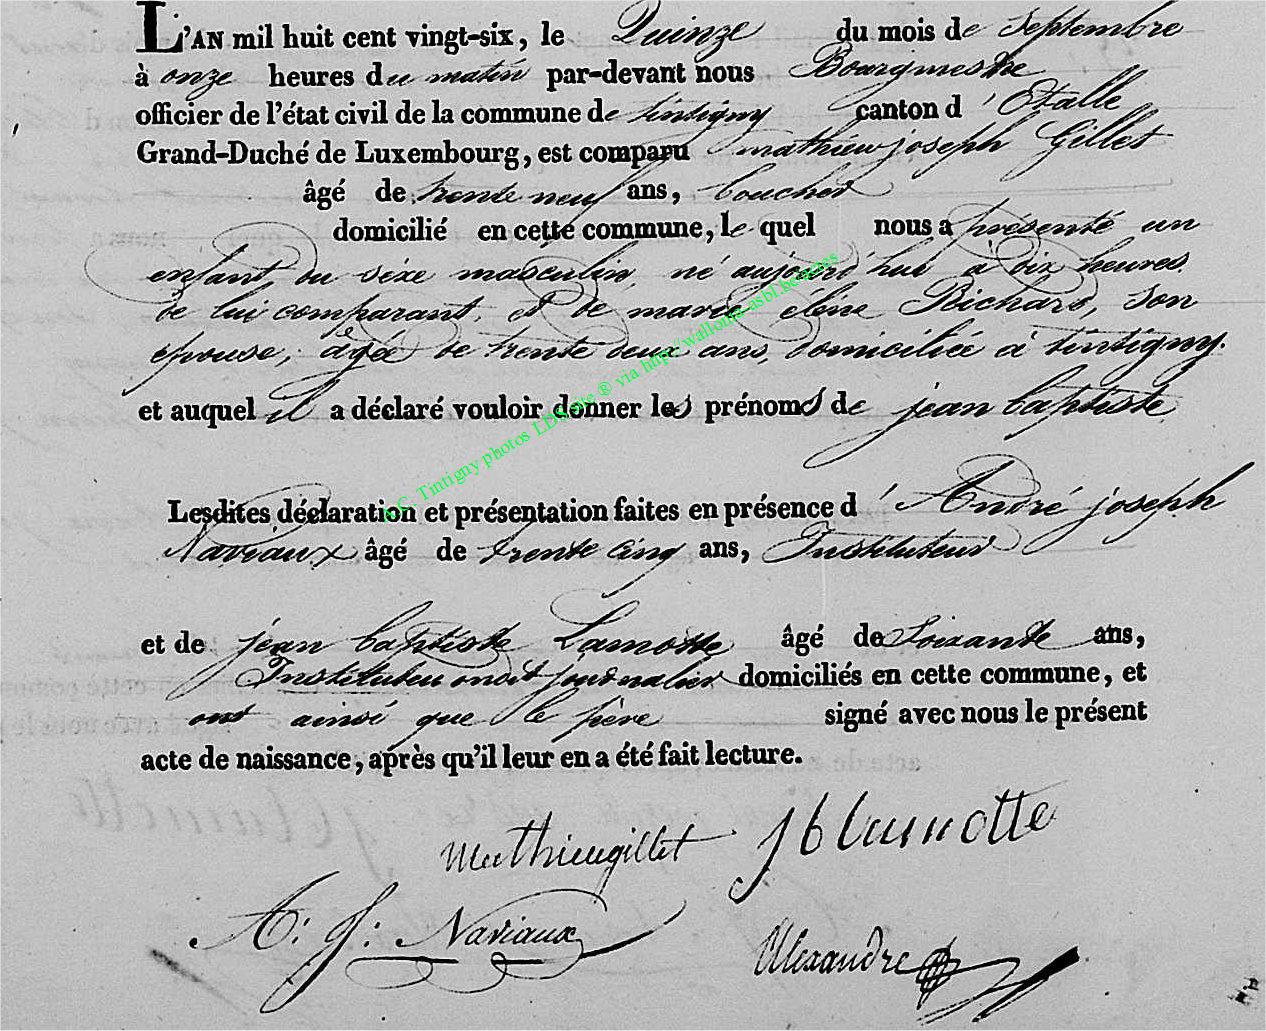 L'AN mil huit cent vingt-six, le Quinze du mois de Septembre
à onze heures du matin par-devant nous Bourgmestre
officier de l'état civil de la commune de tintigny canton d'Etalle
Grand-Duché de Luxembourg, est comparu mathieu joseph Gillet
âgé de trente neuf ans, boucher
domicilié en cette commune, le quel nous a présenté un
enfant du sèxe masculin, né aujourd'hui à dix heures
de lui comparant, et de marie élène Richard, son
épouse, agée de trente deux ans, domiciliée à tintigny.
et auquel il a déclaré vouloir donner les prénoms de jean baptiste
Lesdites déclaration et présentation faites en présence d'André joseph
Naviaux âgé de trente cinq ans, Instituteur
et de jean baptiste Lamotte âgé de Soixante ans,
Instituteur journalier domiciliés en cette commune, et
ont ainsi que le père signé avec nous le présent
acte de naissance, après qu'il leur en a été fait lecture.
Mathieugillet jblamotte
A: J: Naviaux
Alexandre
A.C. Tintigny photos LDS site ® via http://wallonia-asbl.be/actes